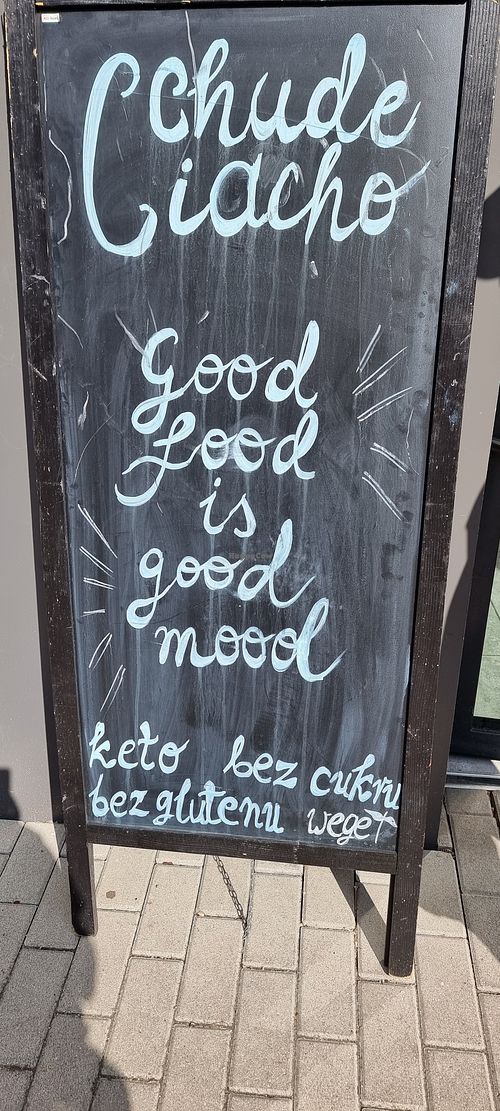 Chude
Ciacho
Good
food
is
good
mood
keto bez cukru
bez glutenu weget